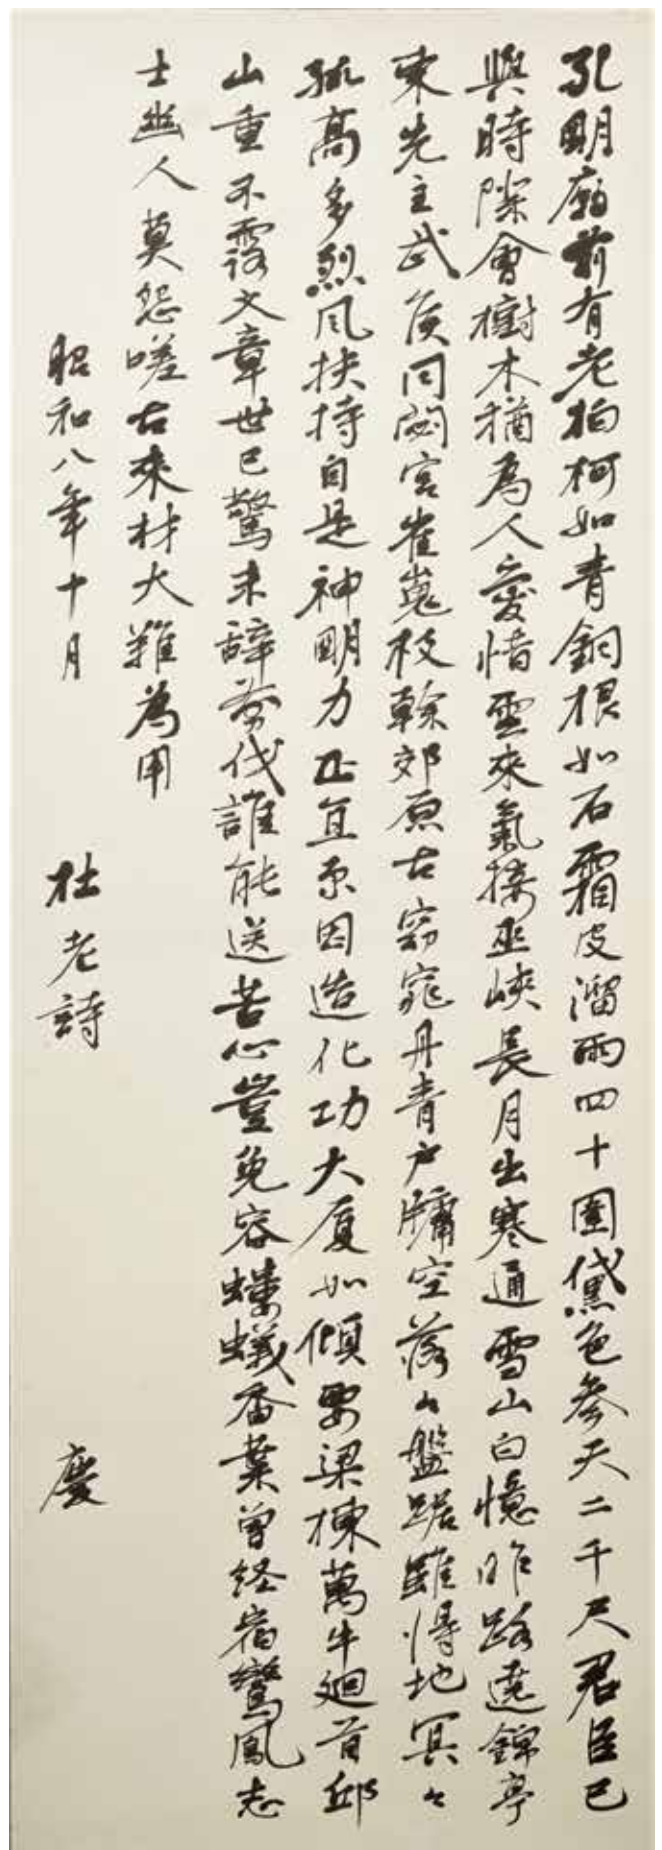 孔明廟前有老柏柯如青銅根如石霜皮溜雨四十圍黛色参天二千尺君臣已
與時際會樹木猶為人愛惜雲來氣接巫峽長月出寒通雪山白憶昨路遶錦亭
東先主武侯同閟宮崔嵬枝幹郊原古窈窕丹青戶牖空落々盤踞雖得地冥々
孤高多烈風扶持自是神明力正直原因造化功大厦如傾要梁棟萬牛廻首邱
山重不露文章世已驚未辞剪伐誰能送苦心豈免容螻蟻香葉曾経宿鸞鳳志
士幽人莫怨嗟古來材大難為用
昭和八年十月　杜老詩　慶